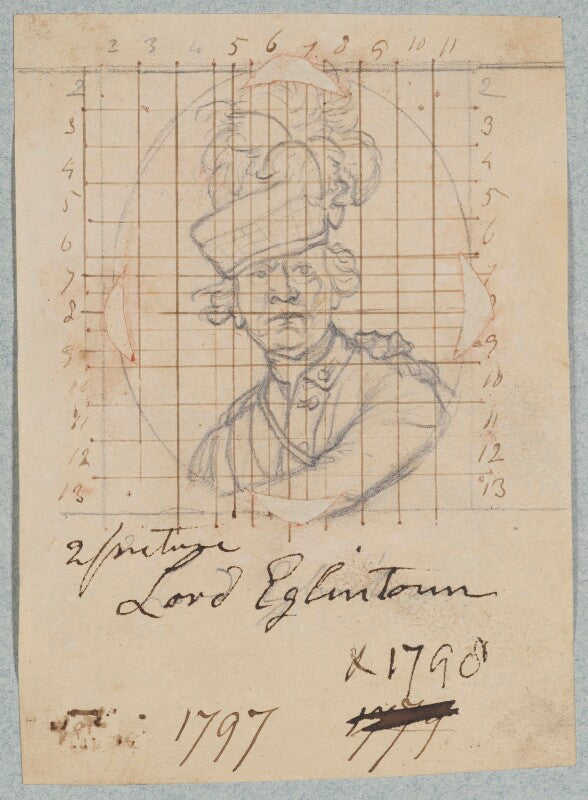 2 3 4 5 6 7 8 9 10 11
2 2
3 3
4 4
5 5
6 6
7 7
8
9 9
10 10
11 11
12 12
13 13
2/picture
Lord Eglintoun
& 1798
1797